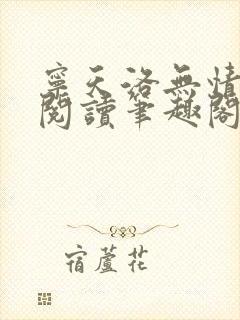 寧天洛無情
閱讀筆趣閣
宿蘆花